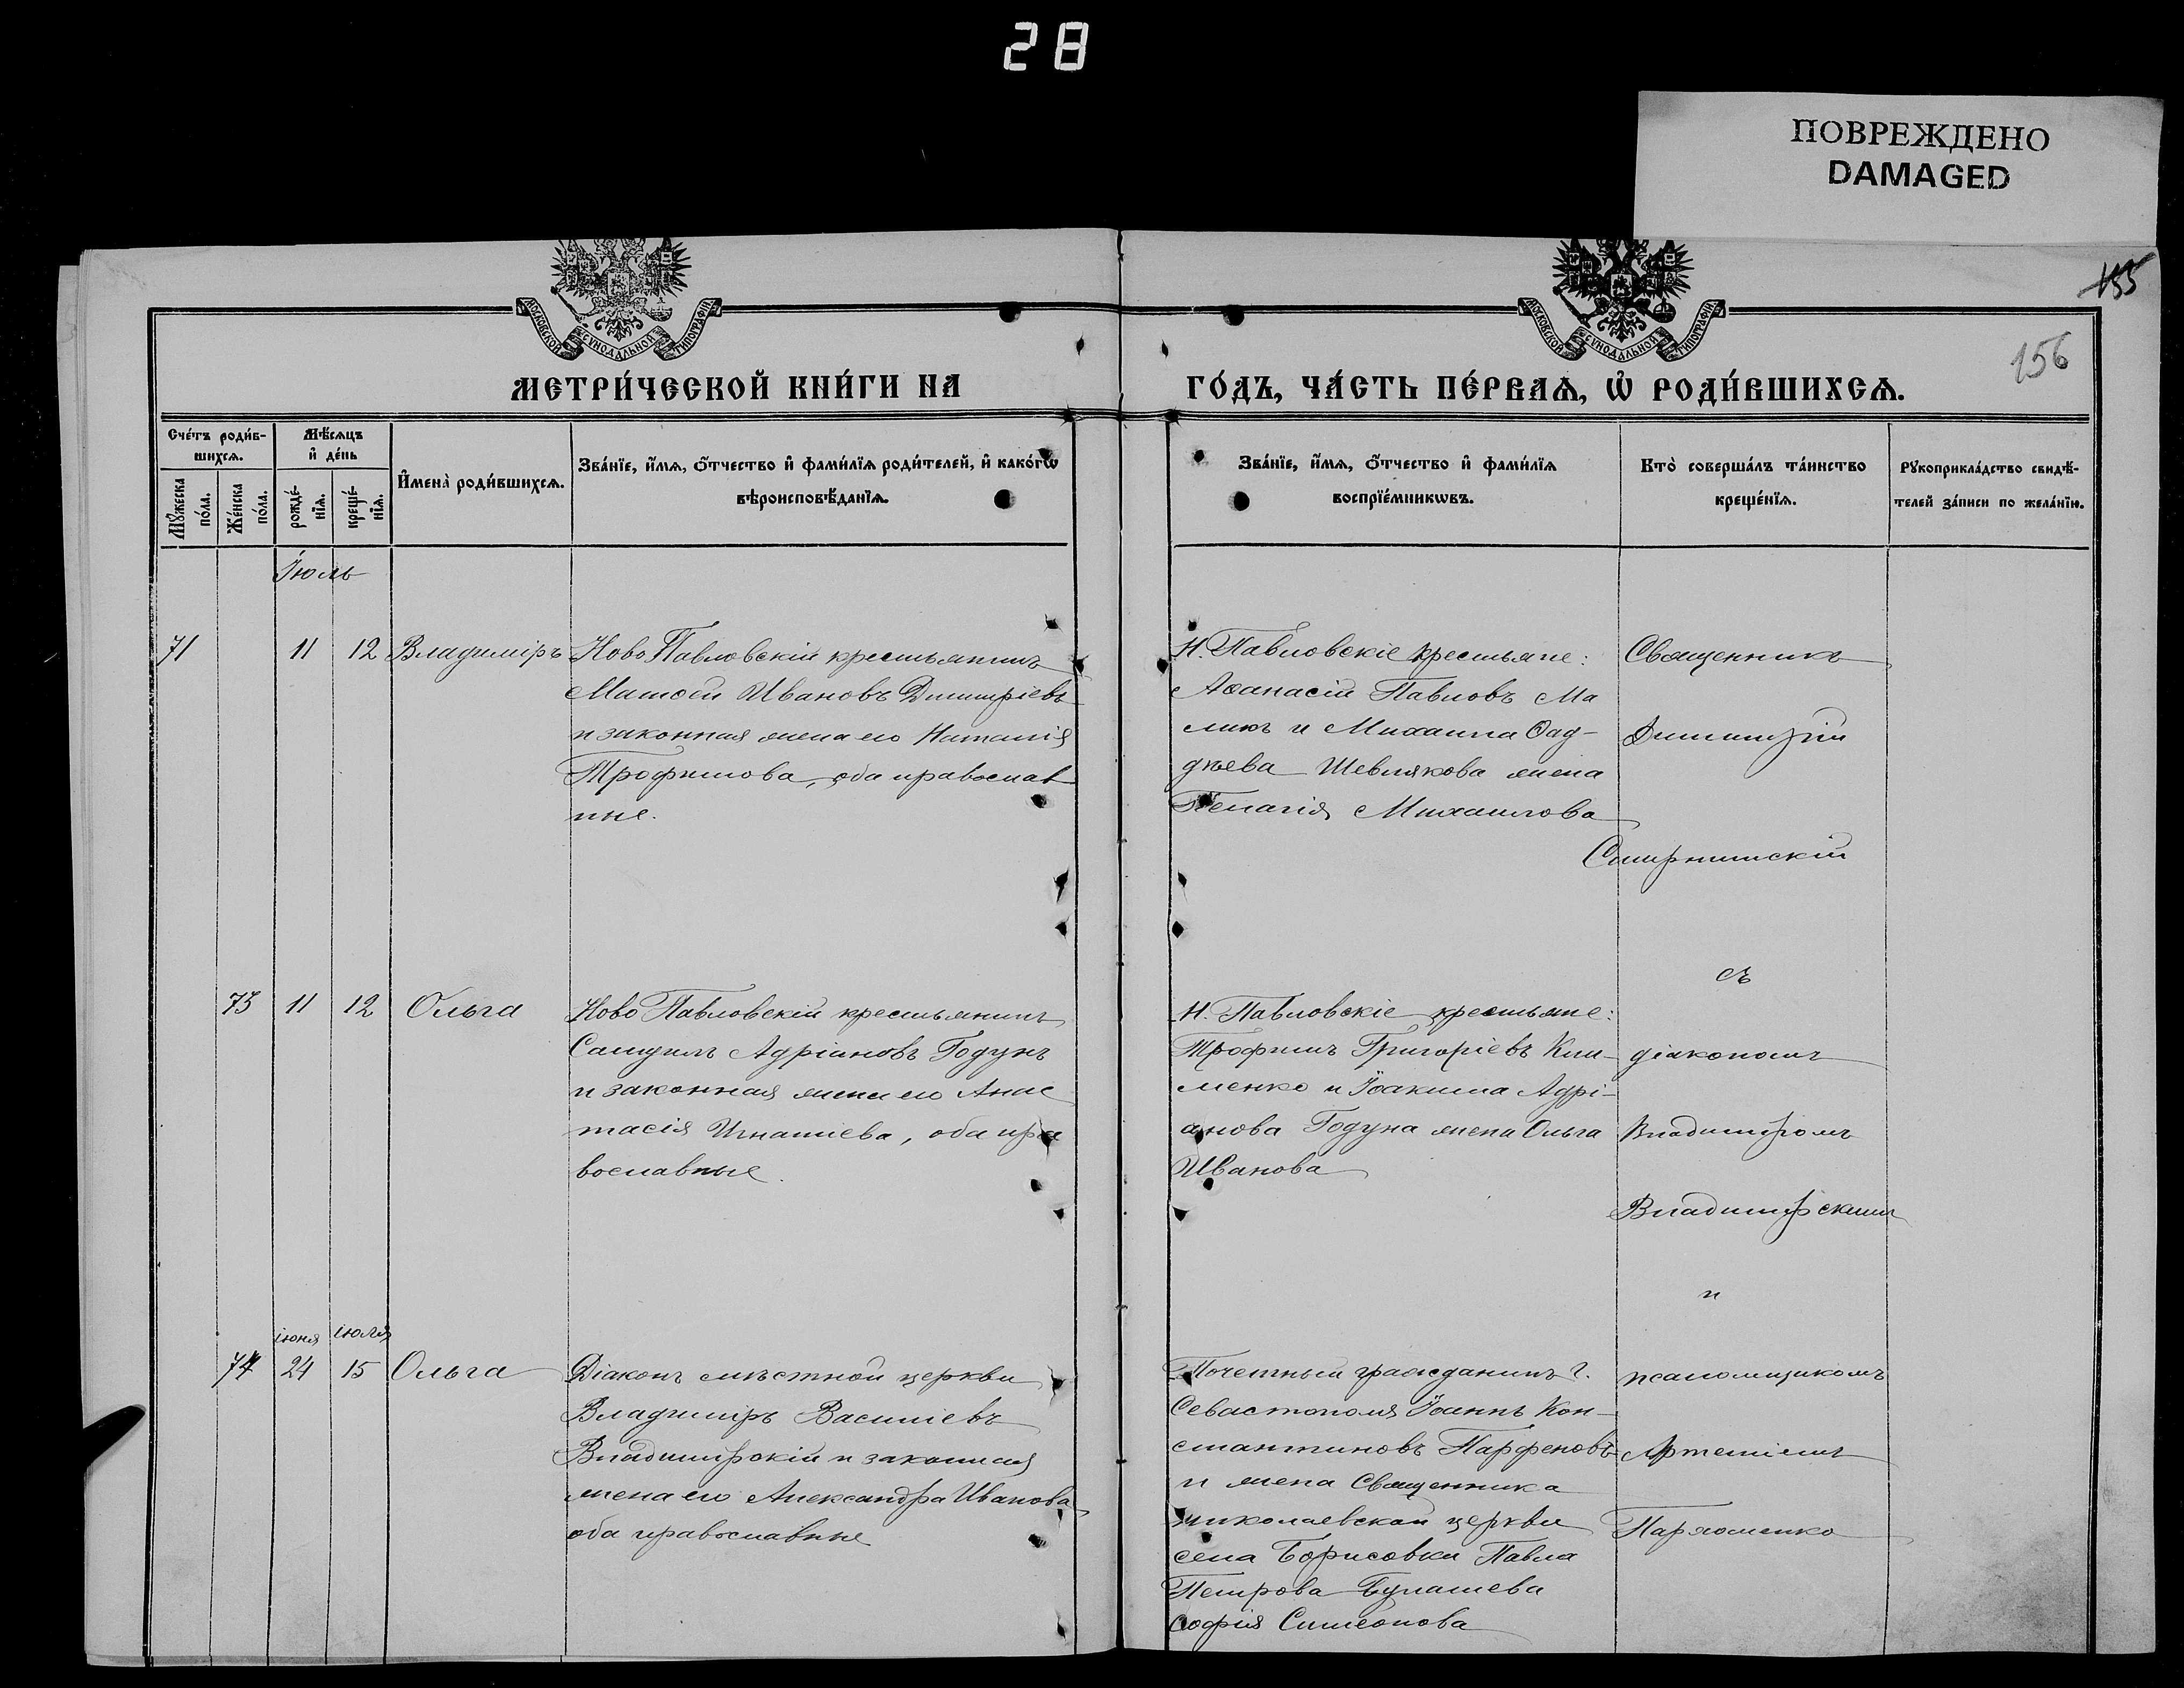 28
ПОВРЕЖДЕНО
DAMAGED
155
156
МОСКОВСКОЙ СѴНОДАЛЬНОЙ ТИПОГРАФІИ
МОСКОВСКОЙ СѴНОДАЛЬНОЙ ТИПОГРАФІИ
МЕТРИ́ЧЕСКОЙ КНИ́ГИ НА
ГО́ДЪ, ЧА́СТЬ ПЕ́РВАѦ, Ѡ҆ РОДИ́ВШИХСѦ.
Сче́тъ роди́в-
шихсѧ.
Мѣ́сѧцъ
и҆ де́нь
Мꙋ́жеска
по́ла.
Же́нска
по́ла.
рожде́-
нїѧ.
креще́-
нїѧ.
И҆мена̀ роди́вшихсѧ.
Зва́нїе, и҆́мѧ, ѻ҆́тчество и҆ фами́лїѧ роди́телей, и҆ како́гѡ
вѣроисповѣ́данїѧ.
Зва́нїе, и҆́мѧ, ѻ҆́тчество и҆ фами́лїѧ
воспрїе́мникѡвъ.
Кто̀ соверша́лъ та́инство
креще́нїѧ.
Рꙋкоприкла́дство свидѣ́-
телей за́писи по жела́нїю.
Іюль
71 11 12 Владиміръ
Ново Павловскій крестьянинъ
Матѳей Ивановъ Димитріевъ
и законная жена его Наталія
Трофимова, оба православ
ные.
Н. Павловскіе крестьяне:
Аѳанасій Павловъ Ма
ликъ и Михаила Ѳад-
дѣева Шевлякова жена
Пелагія Михаилова
Священникъ
Димитрій
Смирнитскій
съ
75 11 12 Ольга
Ново Павловскій крестьянинъ
Самуилъ Адріановъ Годунъ
и законная жена его Анас
тасія Игнатіева, оба пра
вославные.
Н. Павловскіе крестьяне:
Трофимъ Григоріевъ Кли-
менко и Іоакима Адрі-
анова Годуна жена Ольга
Иванова
діакономъ
Владиміромъ
Владимірскимъ
и
іюня іюля
74 24 15 Ольга
Діаконъ мѣстной церкви
Владиміръ Василіевъ
Владимірскій и законная
жена его Александра Иванова
оба православные
Почетный гражданинъ г.
Севастополя Іоаннъ Кон-
стантиновъ Парфеновъ
и жена Священника
николаевской церкви
села Борисовки Павла
Петрова Булашева
Софія Симеонова
псаломщикомъ
Артеміемъ
Пархоменко